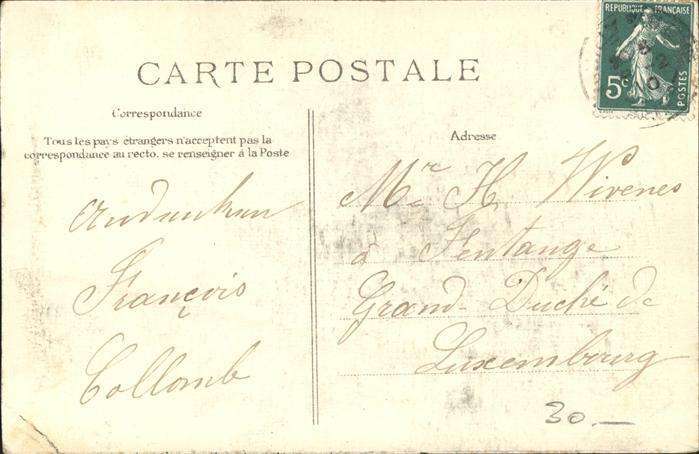 REPUBLIQUE FRANÇAISE
5c
POSTES
CARTE POSTALE
Correspondance
Tous les pays étrangers n'acceptent pas la
correspondance au recto, se renseigner à la Poste
Andenken
François
Collomb
Adresse
Mr H. Wivenes
à Fentange
Grand-Duché de
Luxembourg
30.—